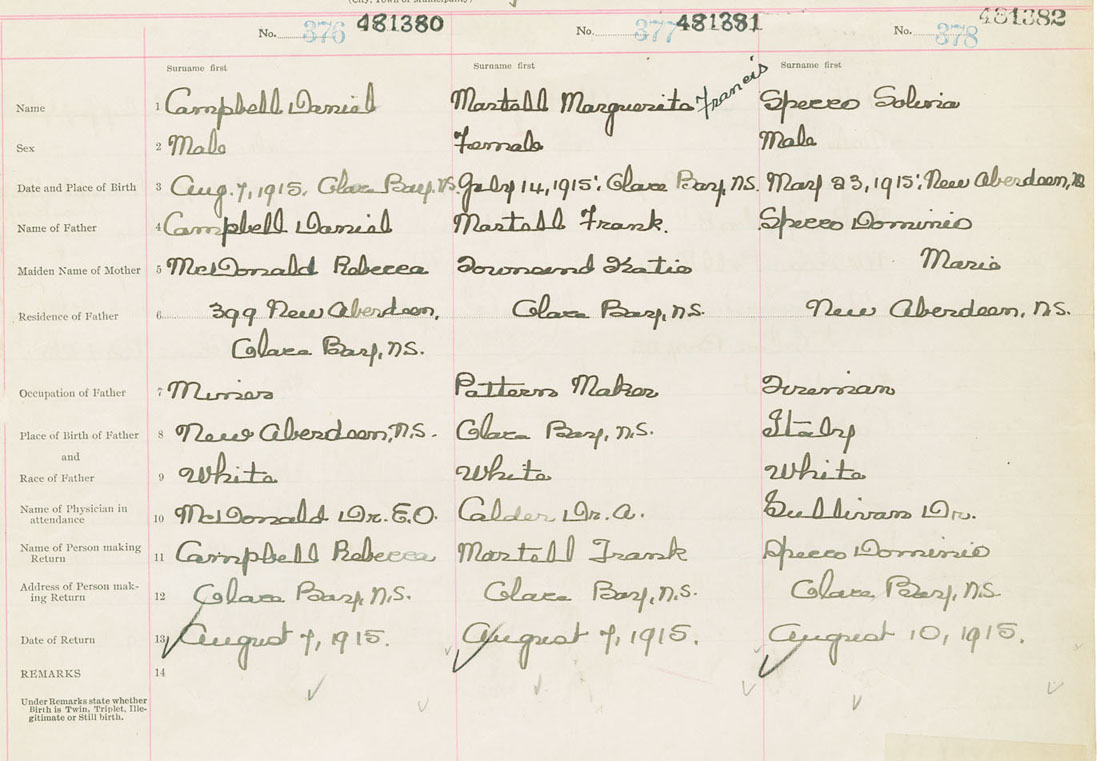 (City, Town or Municipality)
No. 376 481380 No. 377 481381 No. 378 481382
Surname first Surname first Surname first
Name 1 Campbell Daniel Martell Marguerite Francis Specco
Sex 2 Male Female Male
Date and Place of Birth 3 Aug. 7, 1915. Glace Bay, N.S. July 14, 1915; Glace Bay, N.S. May 23, 1915; New Aberdeen, N.S.
Name of Father 4 Campbell Daniel Martell Frank. Specco Dominic
Maiden Name of Mother 5 McDonald Rebecca Townsend Katie Marie
Residence of Father 6 399 New Aberdeen, Glace Bay, N.S. New Aberdeen, N.S.
Glace Bay, N.S.
Occupation of Father 7 Miner Pattern Maker Fireman
Place of Birth of Father 8 New Aberdeen, N.S. Glace Bay, N.S. Italy
and
Race of Father 9 White White White
Name of Physician in
attendance 10 McDonald Dr. E.O. Calder Dr. A. Sullivan Dr.
Name of Person making
Return 11 Campbell Rebecca Martell Frank Specco Dominic
Address of Person mak-
ing Return 12 Glace Bay, N.S. Glace Bay, N.S. Glace Bay, N.S.
Date of Return 13 August 7, 1915. August 7, 1915. August 10, 1915.
REMARKS 14
Under Remarks state whether
Birth is Twin, Triplet, Ille-
gitimate or Still birth.